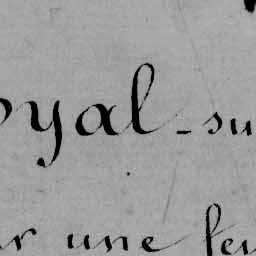 oyal - su
r une feu